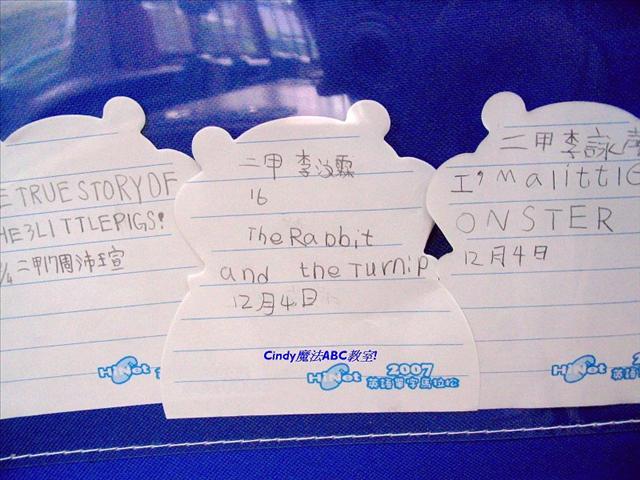 E TRUE STORY OF
HE 3 LITTLE PIGS!
二甲17周沛瑄
HiNet
二甲 李汶霖
16
The Rabbit
and the Turnip
12月4日
Cindy魔法ABC教室!
HiNet 2007
英語單字馬拉松
二甲 李詠
I'm a little
ONSTER
12月4日
HiNet
英語單字馬拉松